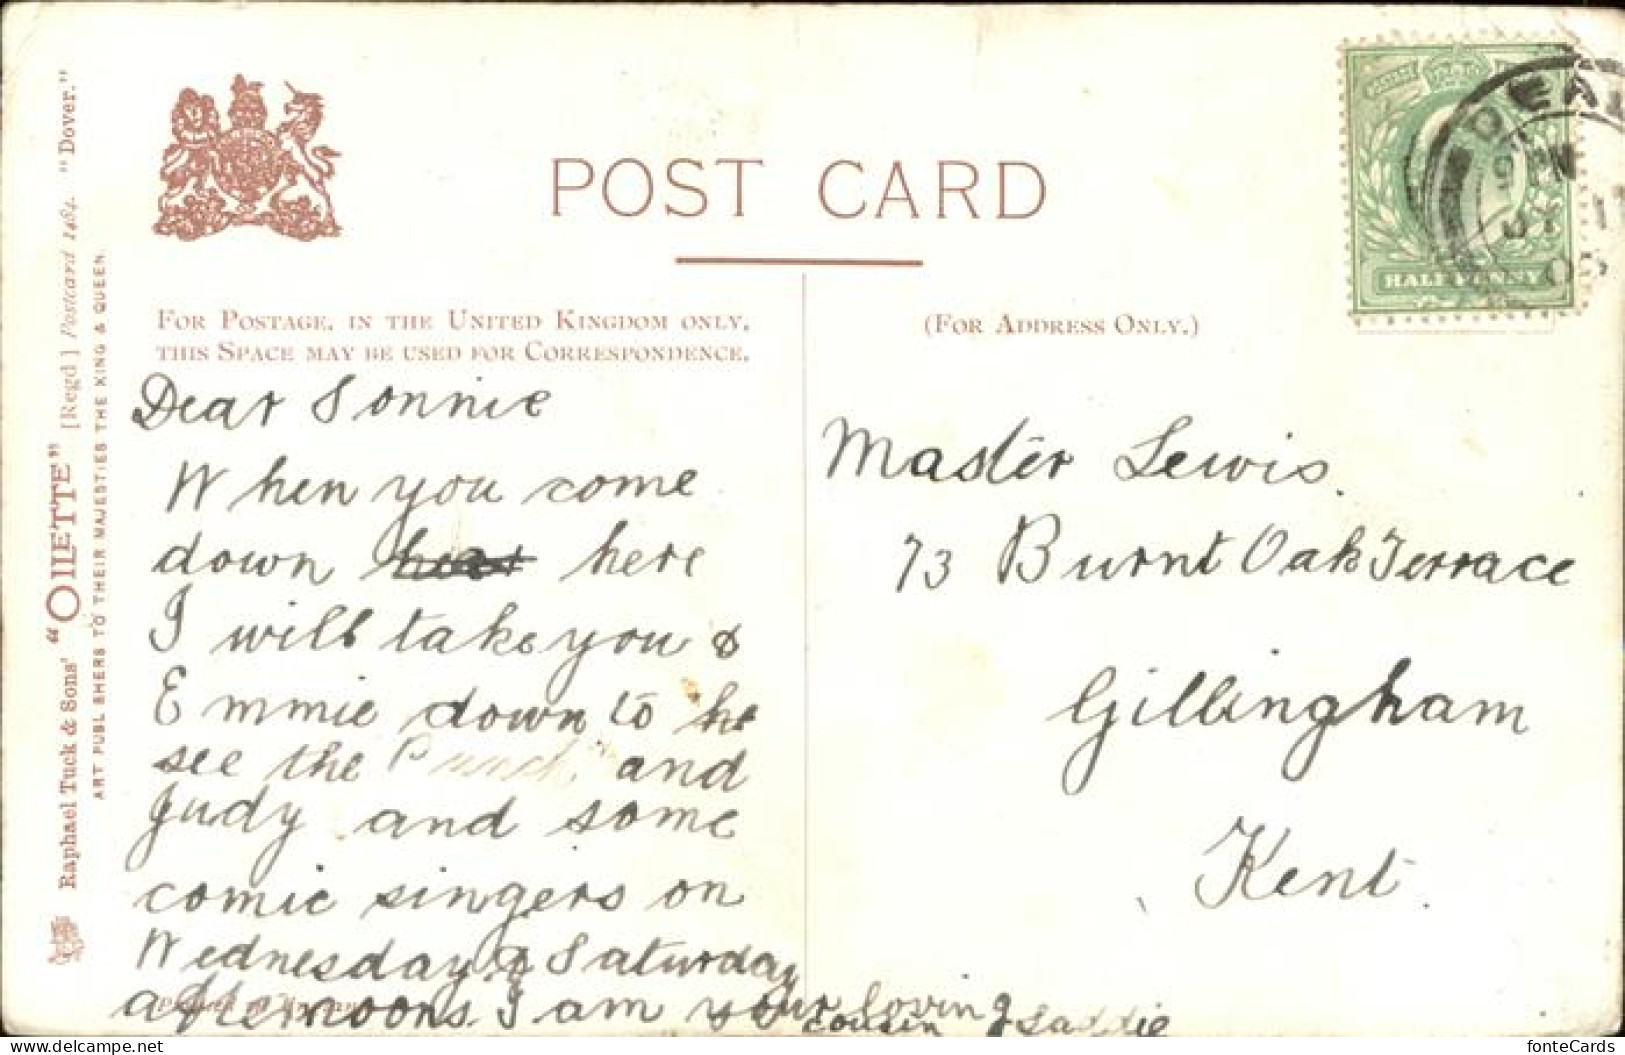 POST CARD
FOR POSTAGE, IN THE UNITED KINGDOM ONLY,
THIS SPACE MAY BE USED FOR CORRESPONDENCE.
(FOR ADDRESS ONLY.)
HALF PENNY
DEAL
JY 11
Raphael Tuck & Sons' "OILETTE" [Regd] Postcard 1484. "Dover."
ART PUBLISHERS TO THEIR MAJESTIES THE KING & QUEEN.
Dear Sonnie
When you come
down here
I will take you &
Emmie down to
see the Punch and
Judy and some
comic singers on
Wednesday & Saturday
afternoons. I am your loving
cousin
Master Lewis.
73 Burnt Oak Terrace
Gillingham
Kent.
fonteCards
delcampe.net